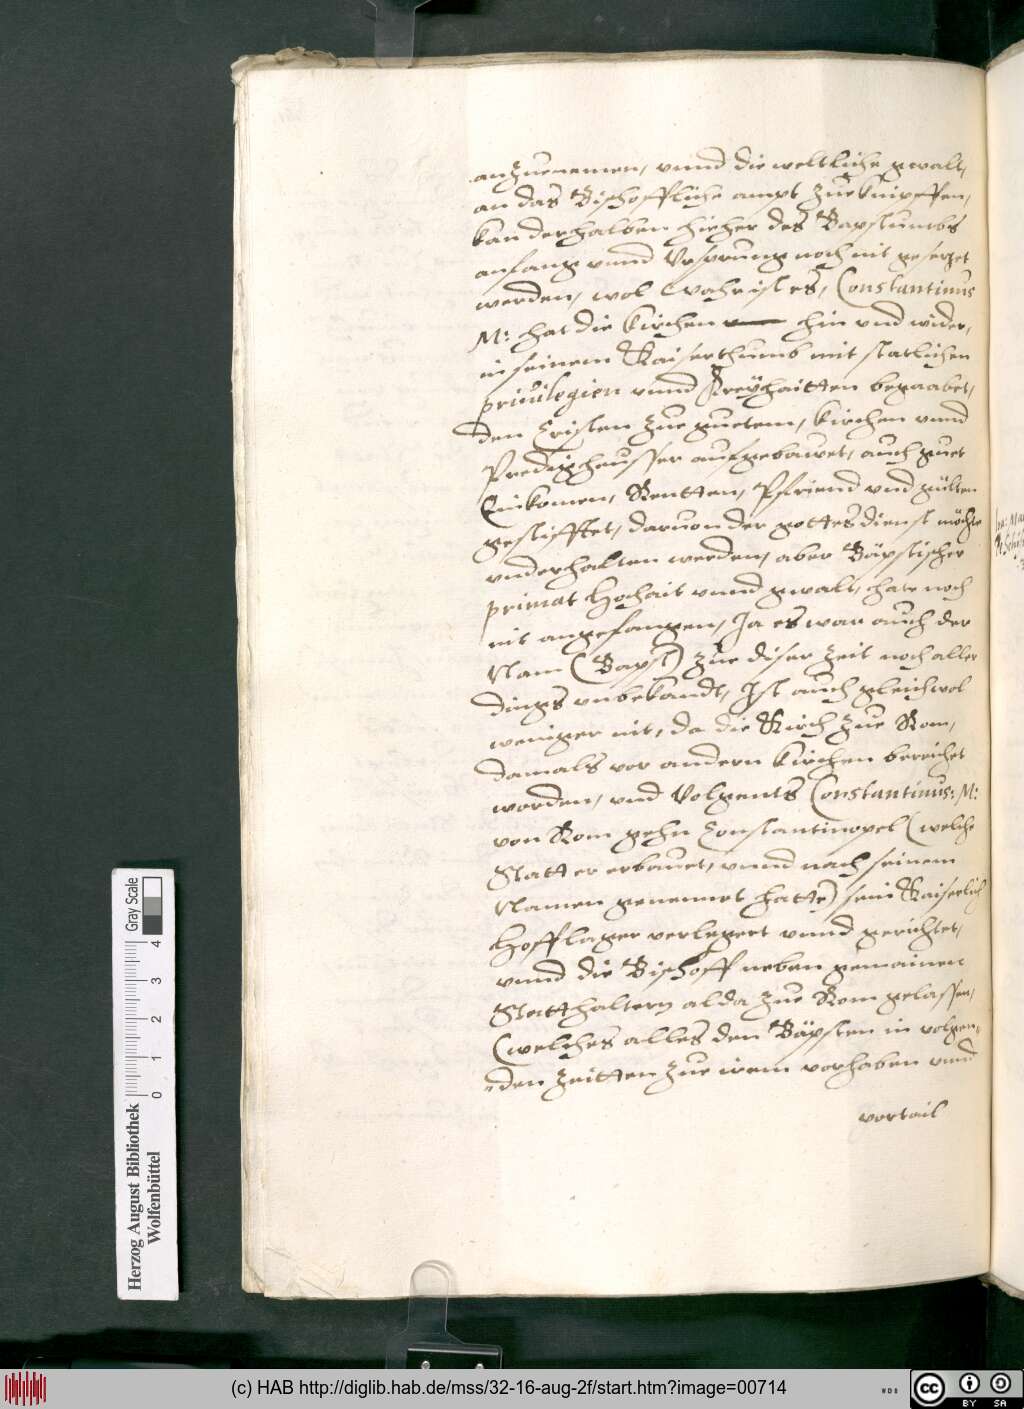 anzuenemen, vnnd die weltliche gwalt,
an das Bischoffliche ampt zue knipffen,
kan derhalben hieher des Bapstumbs
anfang vnnd Vrsprung noch nit gesezet
werden, wol wahr ist es, Constantinus
M: hat die kirchen hin vnd wider,
in seinem Kaiserthumb mit statlichen
priuilegien vnnd Freÿhaitten begaabet,
den Cristen zue guetem, kirchen vnnd
Predigheusser aufgebawet, auch guet
Einkomen, Rentten, Pfriend vnd gülten
gestifftet, daruon der gottesdienst möchte
vnderhalten werden, aber Bäpstischer
primat Hochait vnnd gwalt, hate noch
nit angefangen, Ja es war auch der
Nam (Bapst) zue diser zeit noch aller
dings vnbekandt, Ist auch gleichwol
weniger nit, da die Kirch zue Rom,
damals vor andern kirchen bereichet
worden, vnd Volgents Constantinus: M:
von Rom gehn Constantinopel (welche
Statt er erbauet, vnnd nach seinem
Namen genennet hatte) sein Kaiserlich
Hofflager verlegert vnnd gerichtet,
vnnd die Bischoff neben gemainen
Statthaltern alda zue Rom gelassen,
(welches alles den Bäpsten in volgen,
den zeitten zue irem vorhaben vnnd
vortail
Herzog August Bibliothek
Wolfenbüttel
0 1 2 3 4
Gray Scale
(c) HAB http://diglib.hab.de/mss/32-16-aug-2f/start.htm?image=00714
WDB
cc BY SA